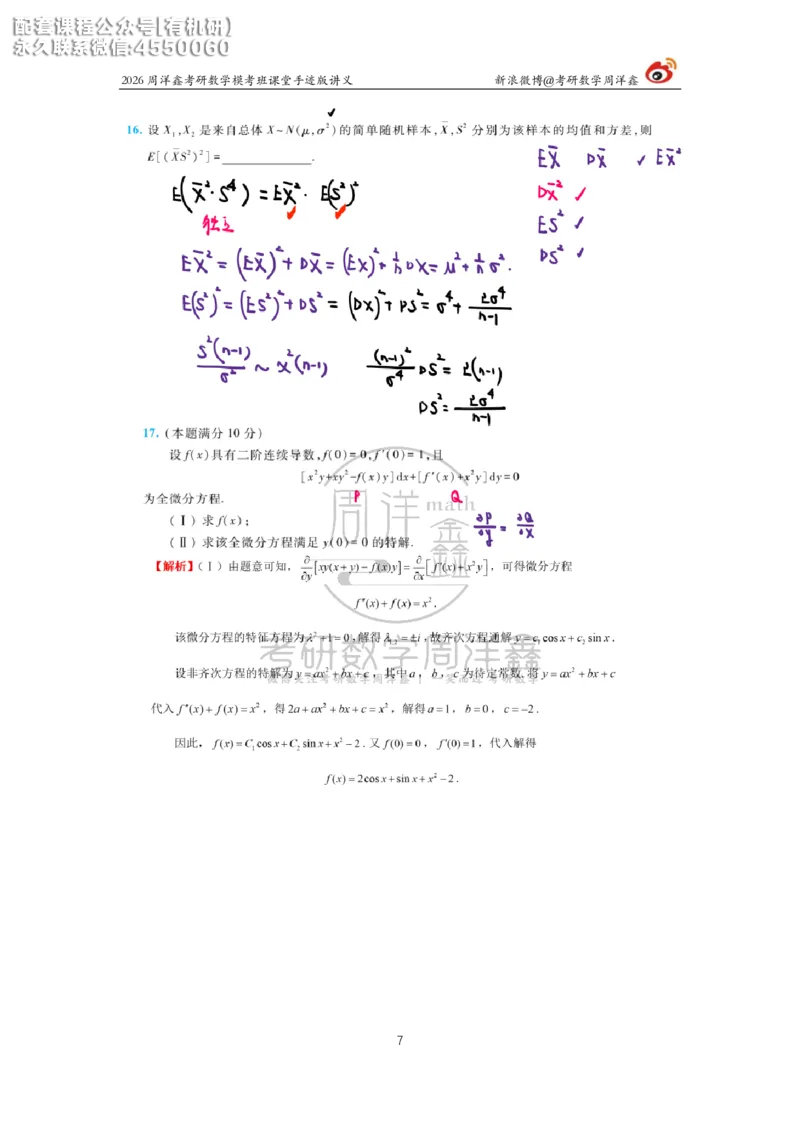 配套课程公众号[有机研]
永久联系微信:4550060
2026周洋鑫考研数学模考班课堂手迹版讲义
新浪微博@考研数学周洋鑫
16. 设 X₁,X₂ 是来自总体 X~N(μ,σ²)的简单随机样本,X̄,S² 分别为该样本的均值和方差,则
E[(X̄S²)²]=____________.
EX̄ DX̄ ✓ EX̄²
DX̄² ✓
ES² ✓
DS² ✓
E(X̄²·S⁴)=EX̄²·E(S²)²
独立
EX̄²=(EX̄)²+DX̄=(EX)²+1/n DX=μ²+1/n σ².
E(S²)²=(ES²)²+DS²=(DX)²+DS²=σ⁴+2σ⁴/(n-1)
S²(n-1)/σ² ~ χ²(n-1)
(n-1)²/σ⁴ DS²=2(n-1)
DS²=2σ⁴/(n-1)
17. (本题满分 10 分)
设 f(x)具有二阶连续导数,f(0)=0,f′(0)=1,且
[x²y+xy²-f(x)y]dx+[f′(x)+x²y]dy=0
为全微分方程.
P Q
(Ⅰ) 求 f(x);
(Ⅱ) 求该全微分方程满足 y(0)=0 的特解.
∂P/∂y = ∂Q/∂x
【解析】(Ⅰ)由题意可知, ∂/∂y[xy(x+y)-f(x)y]=∂/∂x[f′(x)+x²y],可得微分方程
f″(x)+f(x)=x².
该微分方程的特征方程为λ²+1=0,解得λ₁,₂=±i,故齐次方程通解 y=c₁cosx+c₂sinx.
设非齐次方程的特解为 y=ax²+bx+c,其中a,b,c为待定常数.将 y=ax²+bx+c
代入 f″(x)+f(x)=x²,得2a+ax²+bx+c=x²,解得a=1,b=0,c=-2.
因此,f(x)=C₁cosx+C₂sinx+x²-2.又 f(0)=0,f′(0)=1,代入解得
f(x)=2cosx+sinx+x²-2.
周洋鑫
math
考研数学周洋鑫
7